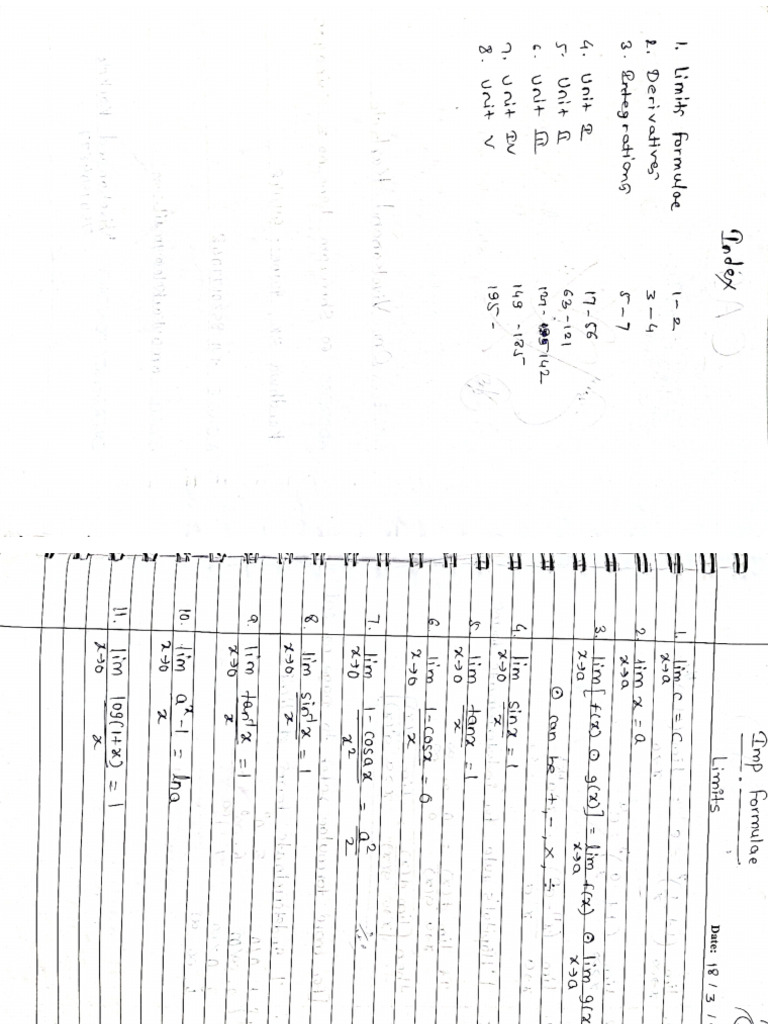 Index
1. Limits formulae 1-2
2. Derivatives 3-4
3. Integrations 5-7
4. Unit I 17-56
5. Unit II 63-121
6. Unit III 142
7. Unit IV 149-185
8. Unit V 195-
Imp Formulae
Limits
Date: 18/3/
1. lim x→a c = c
2. lim x→a x = a
3. lim x→a [f(x) ⊙ g(x)] = lim x→a f(x) ⊙ lim x→a g(x
⊙ can be +, -, ×, ÷
4. lim x→0 sinx/x = 1
5. lim x→0 tanx/x = 1
6. lim x→0 1-cosx/x = 0
7. lim x→0 1-cosax/x² = a²/2
8. lim x→0 sin⁻¹x/x = 1
9. lim x→0 tan⁻¹x/x = 1
10. lim x→0 aˣ-1/x = lna
11. lim x→0 log(1+x)/x = 1